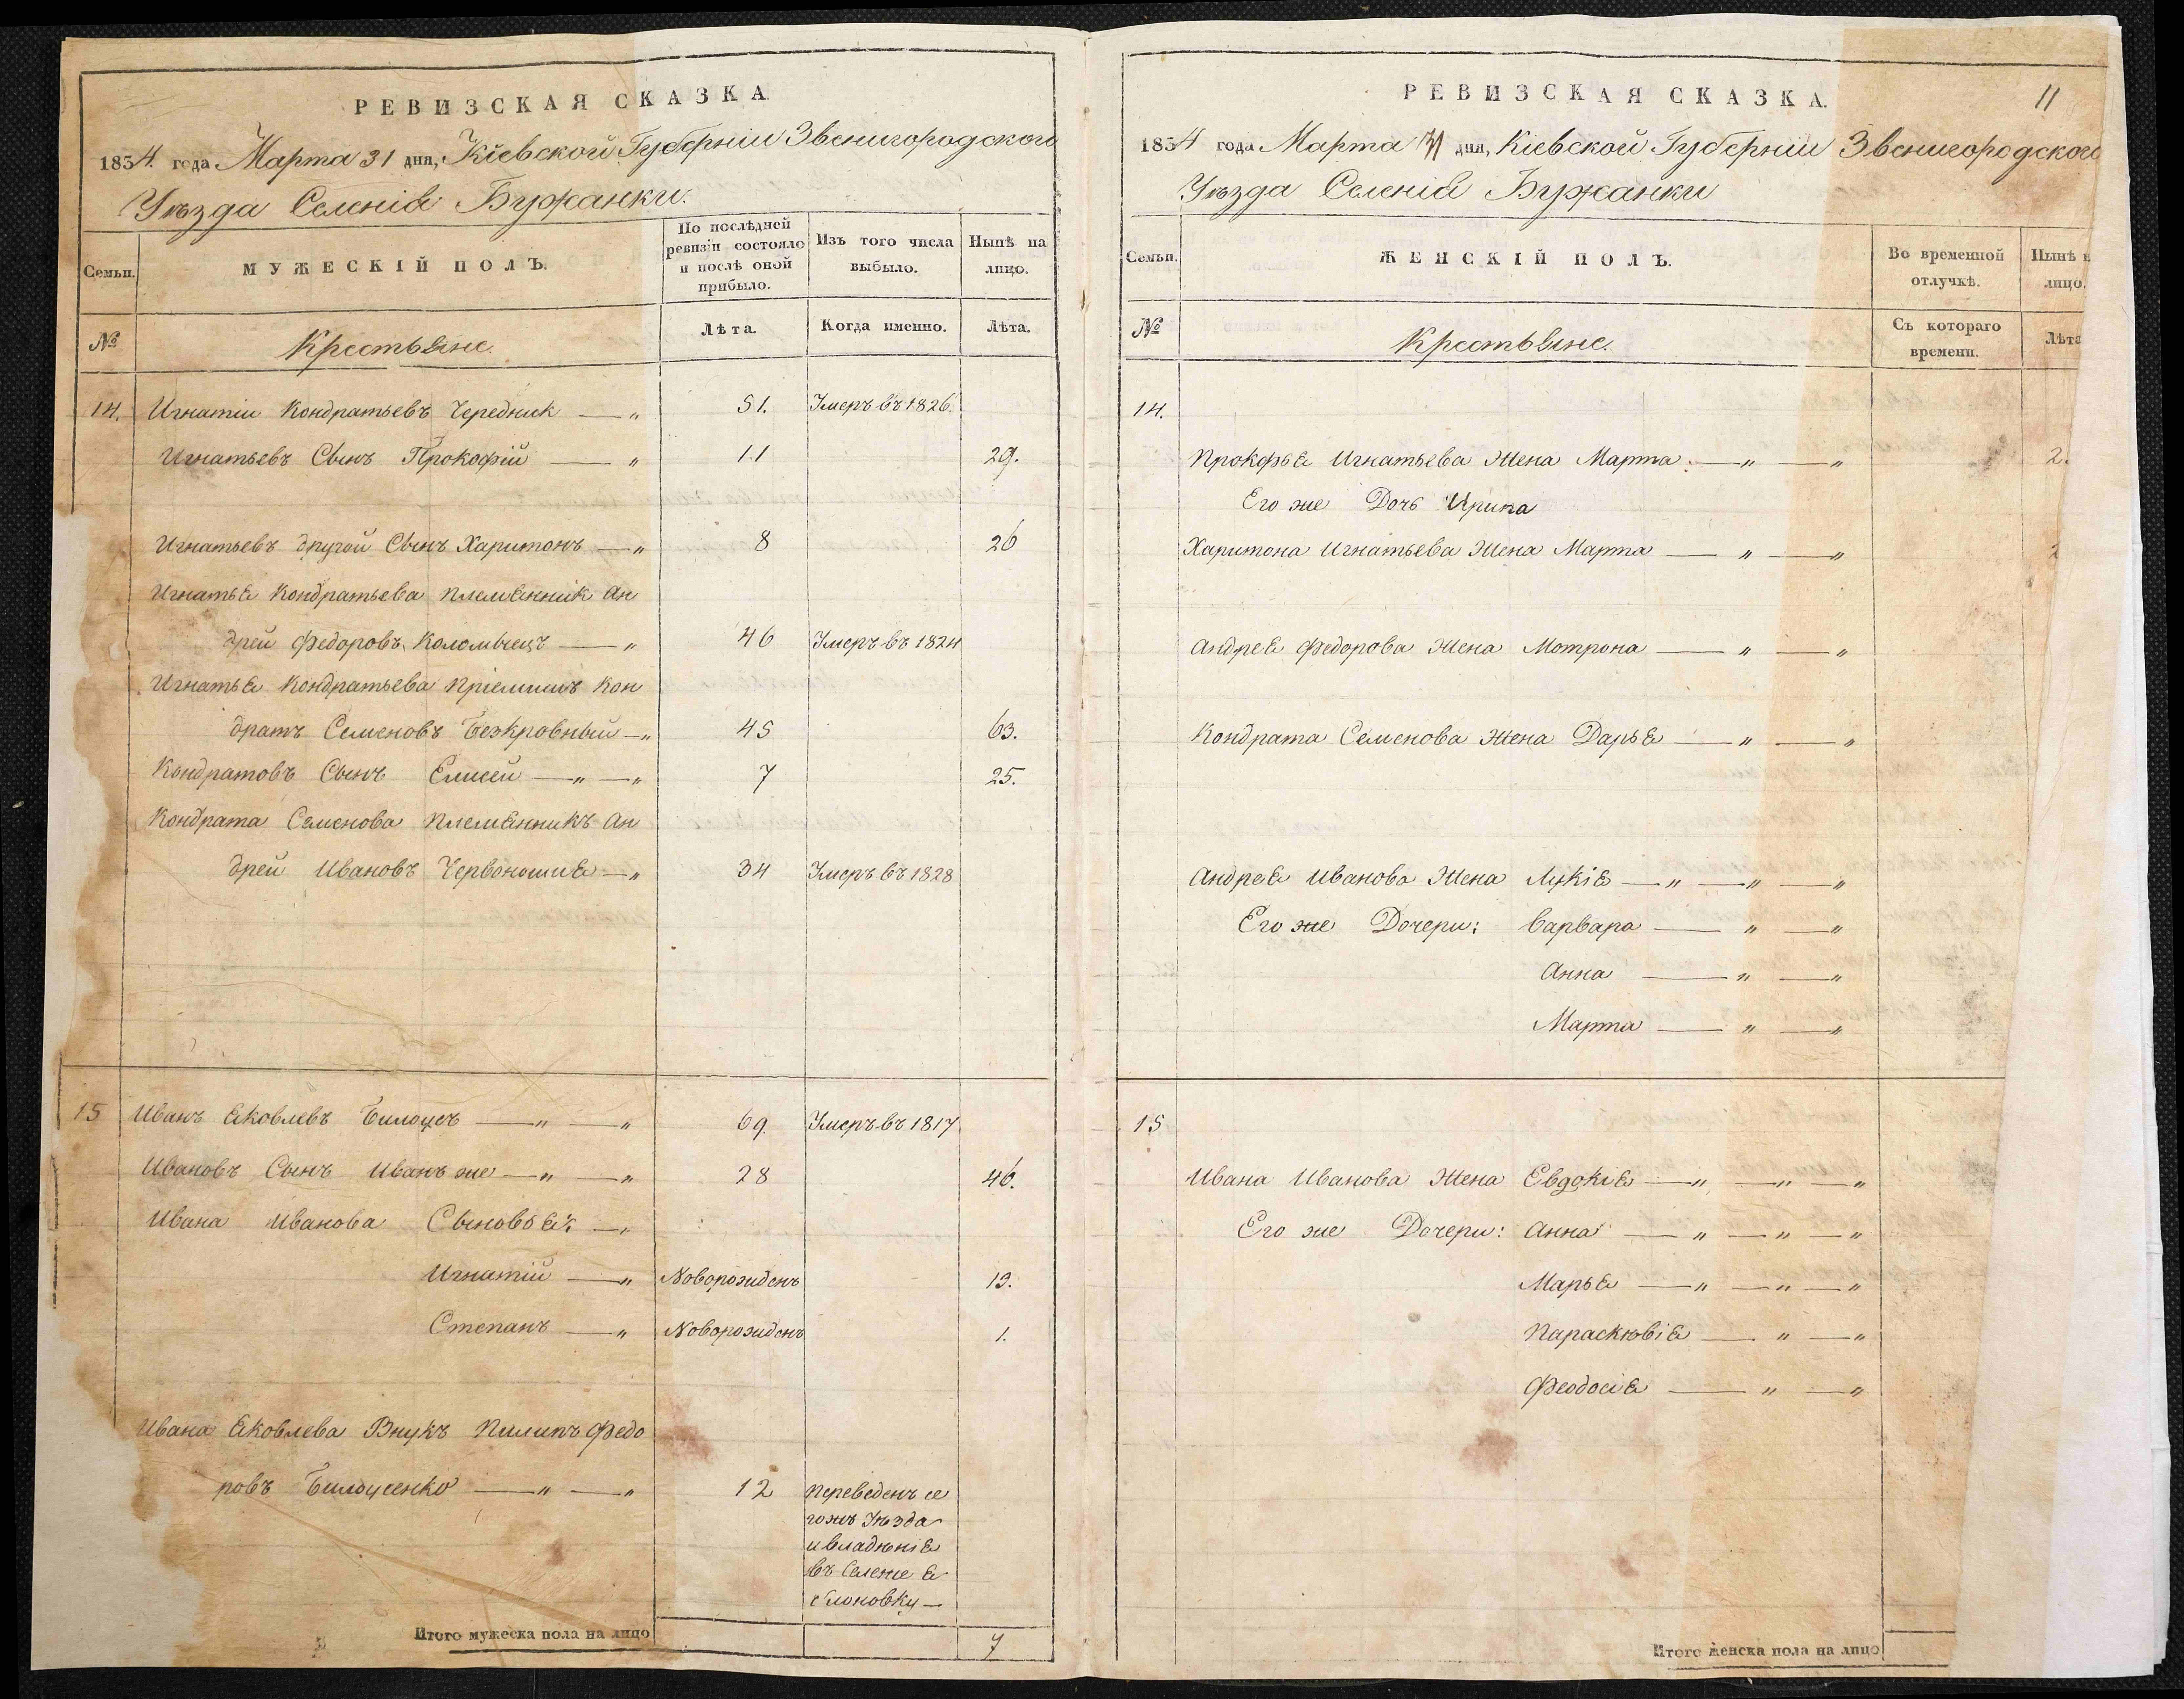 РЕВИЗСКАЯ СКАЗКА
1834 года Марта 31 дня, Кіевской Губерніи Звенигородского
Уѣзда Селенія Бужанки.
Семьи.
МУЖЕСКІЙ ПОЛЪ.
По послѣдней ревизіи состояло и послѣ оной прибыло.
Изъ того числа выбыло.
Нынѣ на лицо.
№
Крестьяне.
Лѣта.
Когда именно.
Лѣта.
14. Игнатій Кондратьевъ Чередник — „ 51. Умеръ въ 1826.
Игнатьевъ Сынъ Прокофій — „ 11 29.
Игнатьевъ другой Сынъ Харитонъ — „ 8 26
Игнатья Кондратьева племянник Ан
дрей Федоровъ Коломыецъ — „ 46 Умеръ въ 1824
Игнатья Кондратьева пріемышъ Кон
дратъ Семеновъ Безкровный — „ 45 63.
Кондратовъ Сынъ Елисей — „ — „ 7 25.
Кондрата Семенова племянникъ Ан
дрей Ивановъ — „ 34 Умеръ въ 1828
15 Иванъ Яковлевъ Билоусъ — „ — „ 69. Умеръ въ 1817
Ивановъ Сынъ Иванъ же — „ — „ 28 46.
Ивана Иванова Сыновья: — „
Игнатій — „ Новорожденъ 13.
Степанъ — „ Новорожденъ 1.
Ивана Яковлева Внукъ Пилипъ Федо
ровъ Билоусенко — „ — „ 12 переведенъ се
гожъ Уѣзда
и владѣнія
въ Селение Я
блоновку —
Итого мужеска пола на лицо 7
11
РЕВИЗСКАЯ СКАЗКА.
1834 года Марта 31 дня, Кіевской Губерніи Звенигородского
Уѣзда Селенія Бужанки
Семьи.
ЖЕНСКІЙ ПОЛЪ.
Во временной отлучкѣ.
Нынѣ н
лицо.
№
Крестьяне.
Съ котораго времени.
Лѣта
14.
Прокофья Игнатьева Жена Марта — „ — „ 2.
Его же Дочь Ирина
Харитона Игнатьева Жена Марта — „ — „ 2
Андрея Федорова Жена Мотрона — „ — „
Кондрата Семенова Жена Дарья — „ — „
Андрея Иванова Жена Лукія — „ — „ — „
Его же Дочери: Варвара — „ — „
Анна — „ — „
Марта — „ — „
15
Ивана Иванова Жена Евдокія — „ — „ — „
Его же Дочери: Анна — „ — „ — „
Марья — „ — „ — „
Параскѣвія — „ — „
Феодосія — „ — „
Итого женска пола на лицо